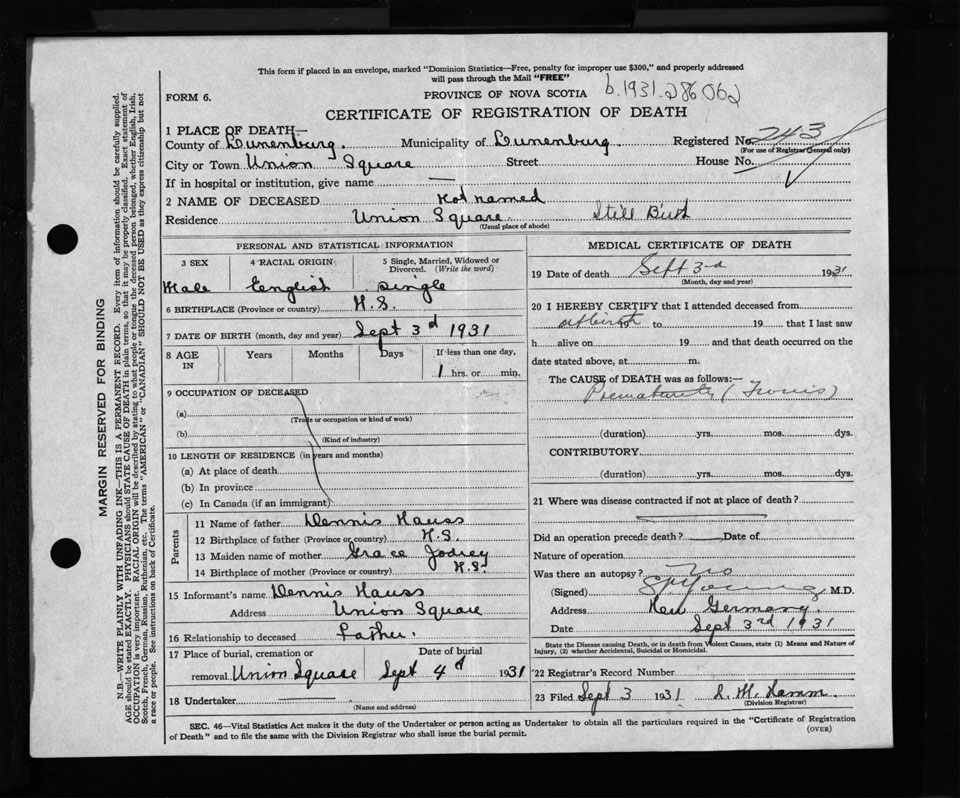 This form if placed in an envelope, marked "Dominion Statistics—Free, penalty for improper use $300," and properly addressed
will pass through the Mail "FREE"
FORM 6. PROVINCE OF NOVA SCOTIA b.1931-286062
CERTIFICATE OF REGISTRATION OF DEATH
1 PLACE OF DEATH—
County of Lunenburg. Municipality of Lunenburg. Registered No. 243
(For use of Registrar General only)
City or Town Union Square Street House No.
If in hospital or institution, give name —
2 NAME OF DECEASED Not named
Residence Union Square Still Birth
(Usual place of abode)
PERSONAL AND STATISTICAL INFORMATION
3 SEX 4 RACIAL ORIGIN 5 Single, Married, Widowed or Divorced. (Write the word)
Male English Single
6 BIRTHPLACE (Province or country) N.S.
7 DATE OF BIRTH (month, day and year) Sept 3d 1931
8 AGE IN Years Months Days If less than one day,
1 hrs. or min.
9 OCCUPATION OF DECEASED
(a)
(Trade or occupation or kind of work)
(b)
(Kind of industry)
10 LENGTH OF RESIDENCE (in years and months)
(a) At place of death
(b) In province
(c) In Canada (if an immigrant)
Parents
11 Name of father Dennis Hauss
12 Birthplace of father (Province or country) N.S.
13 Maiden name of mother Grace Jodrey
14 Birthplace of mother (Province or country) N.S.
15 Informant's name Dennis Hauss
Address Union Square
16 Relationship to deceased Father.
17 Place of burial, cremation or Date of burial
removal Union Square Sept 4d 1931
18 Undertaker
(Name and address)
MEDICAL CERTIFICATE OF DEATH
19 Date of death Sept 3rd 1931
(Month, day and year)
20 I HEREBY CERTIFY that I attended deceased from
at birth 19 to 19 that I last saw
h alive on 19 and that death occurred on the
date stated above, at m.
The CAUSE of DEATH was as follows:—
Prematurity (
(duration) yrs. mos. dys.
CONTRIBUTORY
(duration) yrs. mos. dys.
21 Where was disease contracted if not at place of death?
Did an operation precede death? Date of
Nature of operation
Was there an autopsy? No
(Signed) Young M.D.
Address New Germany.
Date Sept 3rd 1931
State the Disease causing Death, or in death from Violent Causes, state (1) Means and Nature of
Injury, (2) whether Accidental, Suicidal or Homicidal.
22 Registrar's Record Number
23 Filed Sept 3 1931
(Division Registrar)
SEC. 46—Vital Statistics Act makes it the duty of the Undertaker or person acting as Undertaker to obtain all the particulars required in the "Certificate of Registration
of Death" and to file the same with the Division Registrar who shall issue the burial permit. (OVER)
MARGIN RESERVED FOR BINDING
N.B.—WRITE PLAINLY WITH UNFADING INK—THIS IS A PERMANENT RECORD. Every item of information should be carefully supplied.
AGE should be stated EXACTLY. PHYSICIANS should STATE CAUSE OF DEATH in plain terms, so that it may be properly classified. Exact statement of
OCCUPATION is very important. RACIAL ORIGIN will be described by stating to what people or tongue the deceased person belonged, whether English, Irish,
Scotch, French, German, Russian, Ruthenian, etc. The terms "AMERICAN" or "CANADIAN" SHOULD NOT BE USED as they express citizenship but not
a race or people. See instructions on back of Certificate.